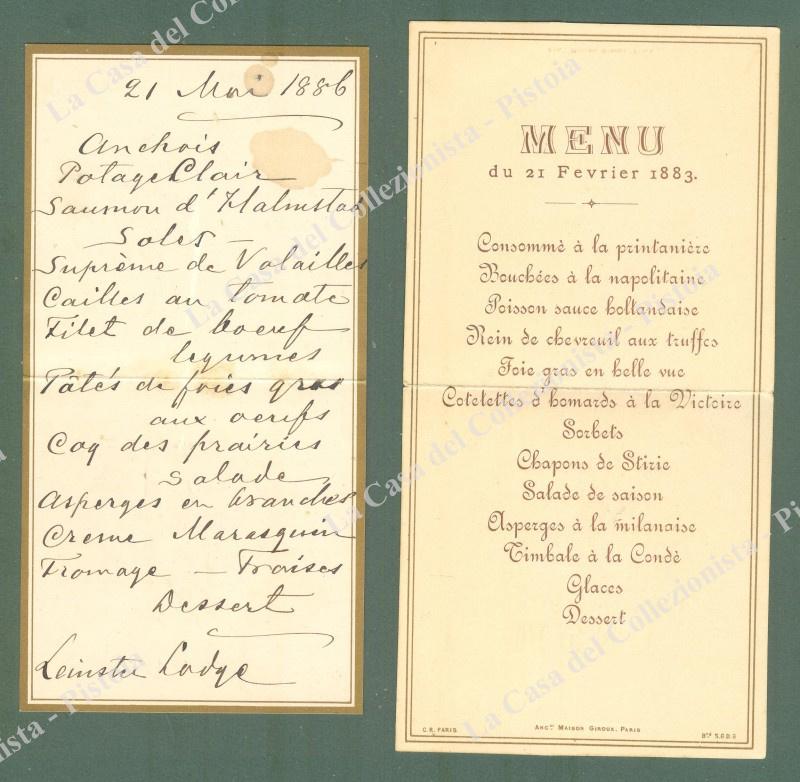 21 Mai 1886
Anchois
Potage Clair
Saumon d'Halmstad
Soles -
Suprême de Volailles
Cailles au tomate
Filet de boeuf
legumes
Pâtés de foies gras
aux oeufs
Coq des prairies
Salade
Asperges en branches
Creme Marasquin
Fromage - Fraises
Dessert
Leinster Lodge
MENU
du 21 Fevrier 1883.
Consommè à la printanière
Bouchées à la napolitaine
Poisson sauce hollandaise
Rein de chevreuil aux truffes
Foie gras en belle vue
Cotelettes d'homards à la Victoire
Sorbets
Chapons de Stirie
Salade de saison
Asperges à la milanaise
Timbale à la Condè
Glaces
Dessert
C.R. PARIS.
ANCNE MAISON GIROUX, PARIS
BTÉ S.G.D.G
La Casa del Collezionista - Pistoia
La Casa del Collezionista - Pistoia
La Casa del Collezionista - Pistoia
La Casa del Collezionista